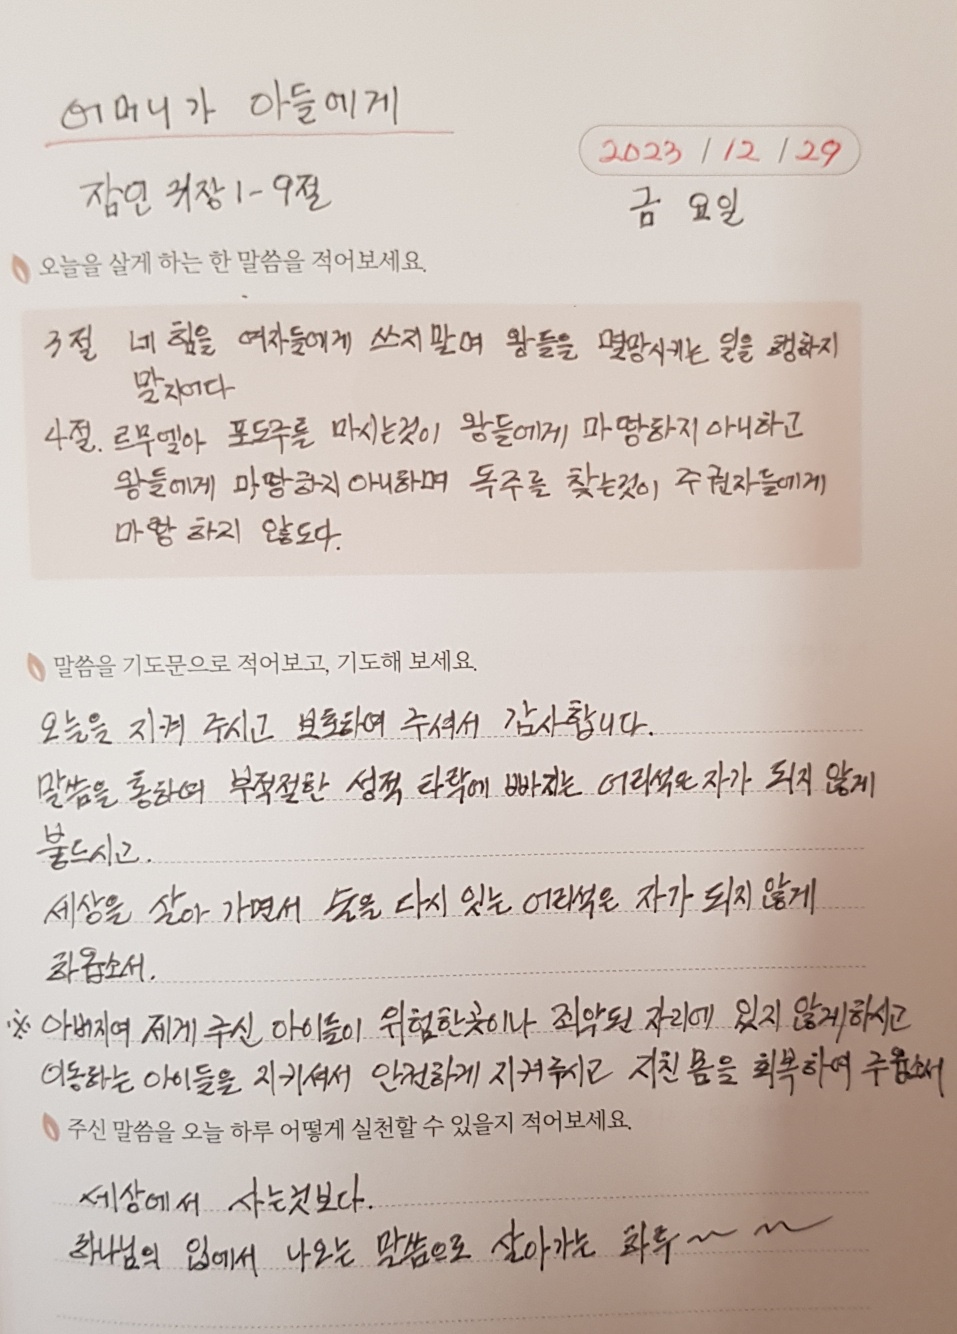 어머니가 아들에게
2023 / 12 / 29
잠언 31장 1-9절
금 요일
오늘을 살게 하는 한 말씀을 적어보세요.
3절 네 힘을 여자들에게 쓰지말며 왕들을 멸망시키는 일을 행하지
말지어다
4절. 르무엘아 포도주를 마시는것이 왕들에게 마땅하지아니하고
왕들에게 마땅하지아니하며 독주를 찾는것이 주권자들에게
마땅 하지 않도다.
말씀을 기도문으로 적어보고, 기도해 보세요.
오늘을 지켜 주시고 보호하여 주셔서 감사합니다.
말씀을 통하여 부적절한 성적 타락에 빠지는 어리석은자가 되지 않게
붙드시고.
세상을 살아 가면서 술을 다시 잇는 어리석은 자가 되지않게
하옵소서.
※ 아버지여 제게 주신 아이들이 위험한곳이나 죄악된 자리에 있지 않게하시고
이동하는 아이들을 지키셔서 안전하게 지켜주시고 지친 몸을 회복하여 주옵소서
주신 말씀을 오늘 하루 어떻게 실천할 수 있을지 적어보세요.
세상에서 사는것보다.
하나님의 입에서 나오는 말씀으로 살아가는 하루~ ~